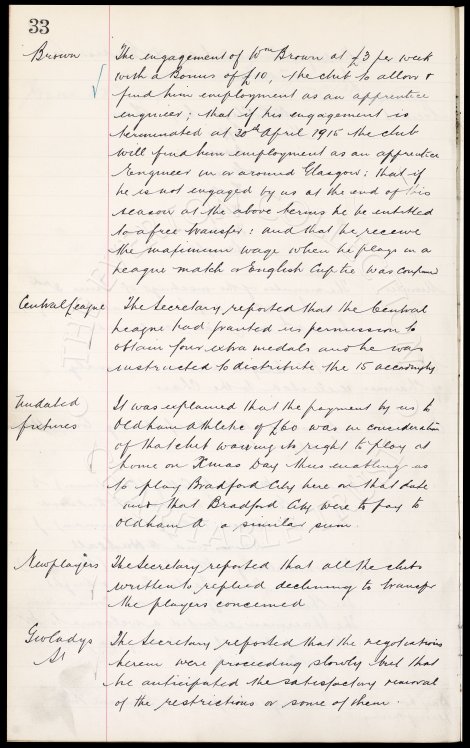 33
Brown The engagement of Wm Brown at £3 per week
with a Bonus of £10, the club to allow &
find him employment as an apprentice
engineer; that if his engagement is
terminated at 30th April 1915 the club
will find him employment as an apprentice
Engineer in or around Glasgow; that if
he is not engaged by us at the end of this
season at the above terms he be entitled
to a free transfer: and that he receive
the maximum wage when he plays in a
League match or English Cup tie was confirmed
Central League The Secretary reported that the Central
League had granted us permission to
obtain four extra medals and he was
instructed to distribute the 15 accordingly
Undated It was explained that the payment by us to
fixtures Oldham Athletic of £60 was in consideration
of that club waiving its right to play at
home on Xmas Day thus enabling us
to play Bradford City here on that date
and that Bradford City were to pay to
Oldham A a similar sum.
New players The Secretary reported that all the clubs
written to replied declining to transfer
the players concerned
Gwladys The Secretary reported that the negotiations
St herein were proceeding slowly but that
he anticipated the satisfactory removal
of the restrictions or some of them.